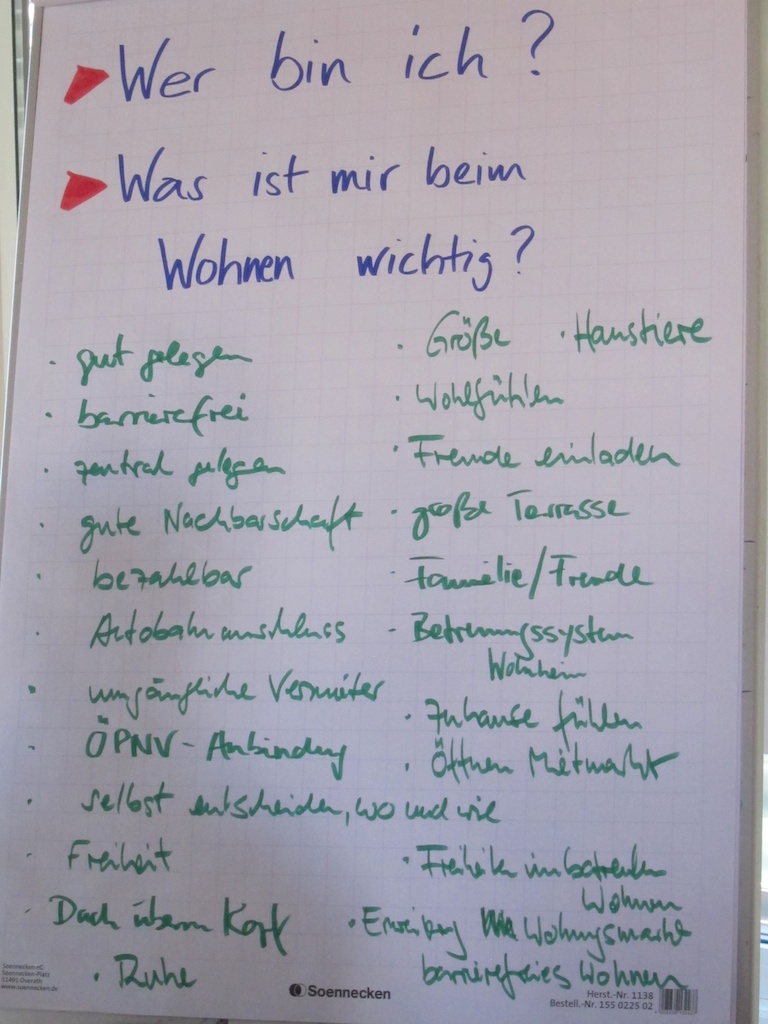 Wer bin ich?
Was ist mir beim
Wohnen wichtig?
· gut gelegen
· barrierefrei
· zentral gelegen
· gute Nachbarschaft
· bezahlbar
· Autobahnanschluss
· umgängliche Vermieter
· ÖPNV-Anbindung
· selbst entscheiden, wo und wie
· Freiheit
· Dach überm Kopf
· Ruhe
· Größe · Haustiere
· Wohlfühlen
· Freunde einladen
· große Terrasse
- Familie/Freunde
- Betreuungssystem
Wohnheim
· Zuhause fühlen
· Öffnen Mietmarkt
· Freiheiten im betreuten
Wohnen
· Erweiterung Wohnungsmarkt
barrierefreies Wohnen
Soennecken eG
Soennecken-Platz
51491 Overath
www.soennecken.de
Soennecken
Herst.-Nr. 1138
Bestell.-Nr. 155 0225 02